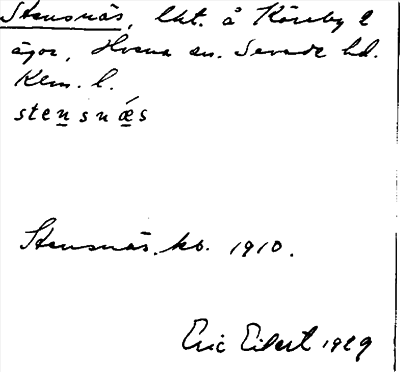 Stensnäs, lht. å Kärsby l
ägor, Hvena sn. Sevede hd.
Kalm. l.
stensnǽs
Stensnäs. kb. 1910.
Eric Eilert 1929